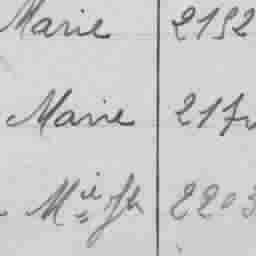 Marie 2192
Marie 217
Mie 2203